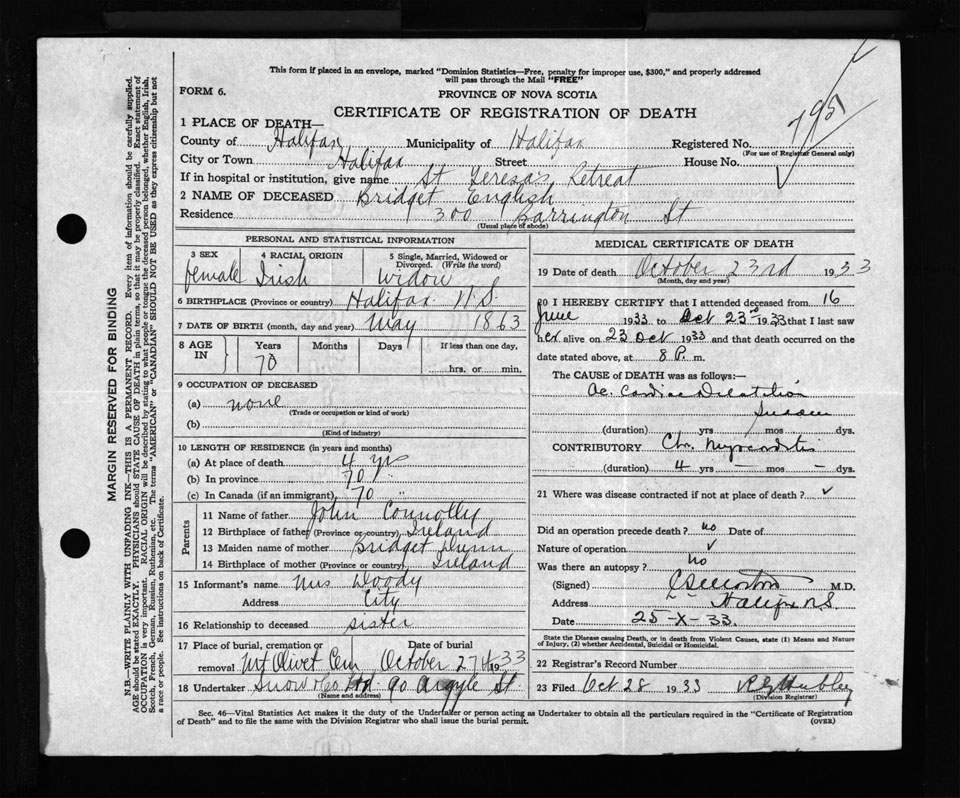 This form if placed in an envelope, marked "Dominion Statistics—Free, penalty for improper use, $300," and properly addressed
will pass through the Mail "FREE"
FORM 6.
PROVINCE OF NOVA SCOTIA
CERTIFICATE OF REGISTRATION OF DEATH
795
1 PLACE OF DEATH—
County of Halifax Municipality of Halifax Registered No.
(For use of Registrar General only)
City or Town Halifax Street House No.
If in hospital or institution, give name St Teresa's Retreat
2 NAME OF DECEASED Bridget English
Residence 300 Barrington St
(Usual place of abode)
PERSONAL AND STATISTICAL INFORMATION
3 SEX 4 RACIAL ORIGIN 5 Single, Married, Widowed or
Divorced. (Write the word)
female Irish Widow
6 BIRTHPLACE (Province or country) Halifax N.S.
7 DATE OF BIRTH (month, day and year) May 1863
8 AGE IN Years Months Days If less than one day,
70 hrs. or min.
9 OCCUPATION OF DECEASED
(a) none
(Trade or occupation or kind of work)
(b)
(Kind of industry)
10 LENGTH OF RESIDENCE (in years and months)
(a) At place of death 4 yr
(b) In province 70 "
(c) In Canada (if an immigrant) 70 "
Parents
11 Name of father John Connolly
12 Birthplace of father (Province or country) Ireland
13 Maiden name of mother Bridget Dunn
14 Birthplace of mother (Province or country) Ireland
15 Informant's name Mrs Doody
Address City
16 Relationship to deceased sister
17 Place of burial, cremation or Date of burial
removal Mt Olivet Cem October 27th 1933
18 Undertaker Snow & Co Ltd. 90 Argyle St
(Name and address)
MEDICAL CERTIFICATE OF DEATH
19 Date of death October 23rd 1933
(Month, day and year)
20 I HEREBY CERTIFY that I attended deceased from 16
June 1933 to Oct 23rd 1933 that I last saw
her alive on 23 Oct 1933 and that death occurred on the
date stated above, at 8 P. m.
The CAUSE OF DEATH was as follows:—
Ac. Cardiac Dilatation
Sudden
(duration) yrs mos dys.
CONTRIBUTORY Chr. Myocarditis
(duration) 4 yrs — mos — dys.
21 Where was disease contracted if not at place of death?
Did an operation precede death? no Date of
Nature of operation
Was there an autopsy? no
(Signed) M.D.
Address Halifax NS
Date 25-X-33.
State the Disease causing Death, or in death from Violent Causes, state (1) Means and Nature
of Injury, (2) whether Accidental, Suicidal or Homicidal.
22 Registrar's Record Number
23 Filed Oct 28 1933
(Division Registrar)
Sec. 46—Vital Statistics Act makes it the duty of the Undertaker or person acting as Undertaker to obtain all the particulars required in the "Certificate of Registration
of Death" and to file the same with the Division Registrar who shall issue the burial permit. (OVER)
MARGIN RESERVED FOR BINDING
N.B.—WRITE PLAINLY WITH UNFADING INK—THIS IS A PERMANENT RECORD. Every item of information should be carefully supplied.
AGE should be stated EXACTLY. PHYSICIANS should STATE CAUSE OF DEATH in plain terms, so that it may be properly classified. Exact statement of
OCCUPATION is very important. RACIAL ORIGIN will be described by stating to what people or tongue the deceased person belonged, whether English, Irish,
Scotch, French, German, Russian, Ruthenian, etc. The terms "AMERICAN" or "CANADIAN" SHOULD NOT BE USED as they express citizenship but not
a race or people. See instructions on back of Certificate.